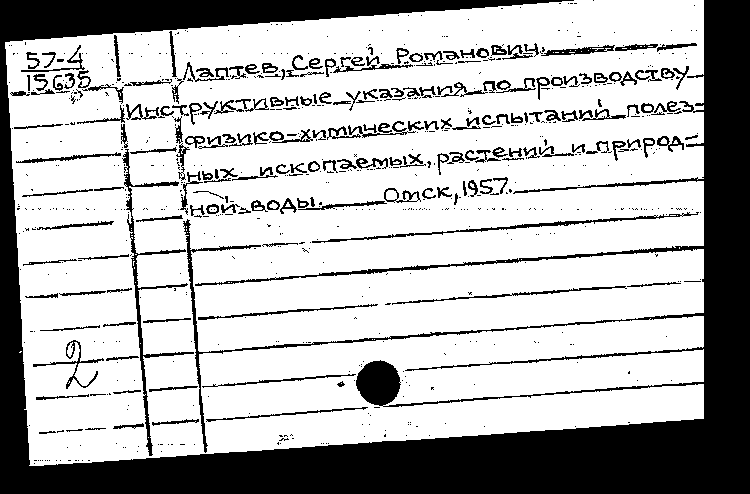 57-4
15635
Лаптев, Сергей Романович.
Инструктивные указания по производству
физико-химических испытаний полез=
ных ископаемых, растений и природ=
ной воды. Омск, 1957.
2